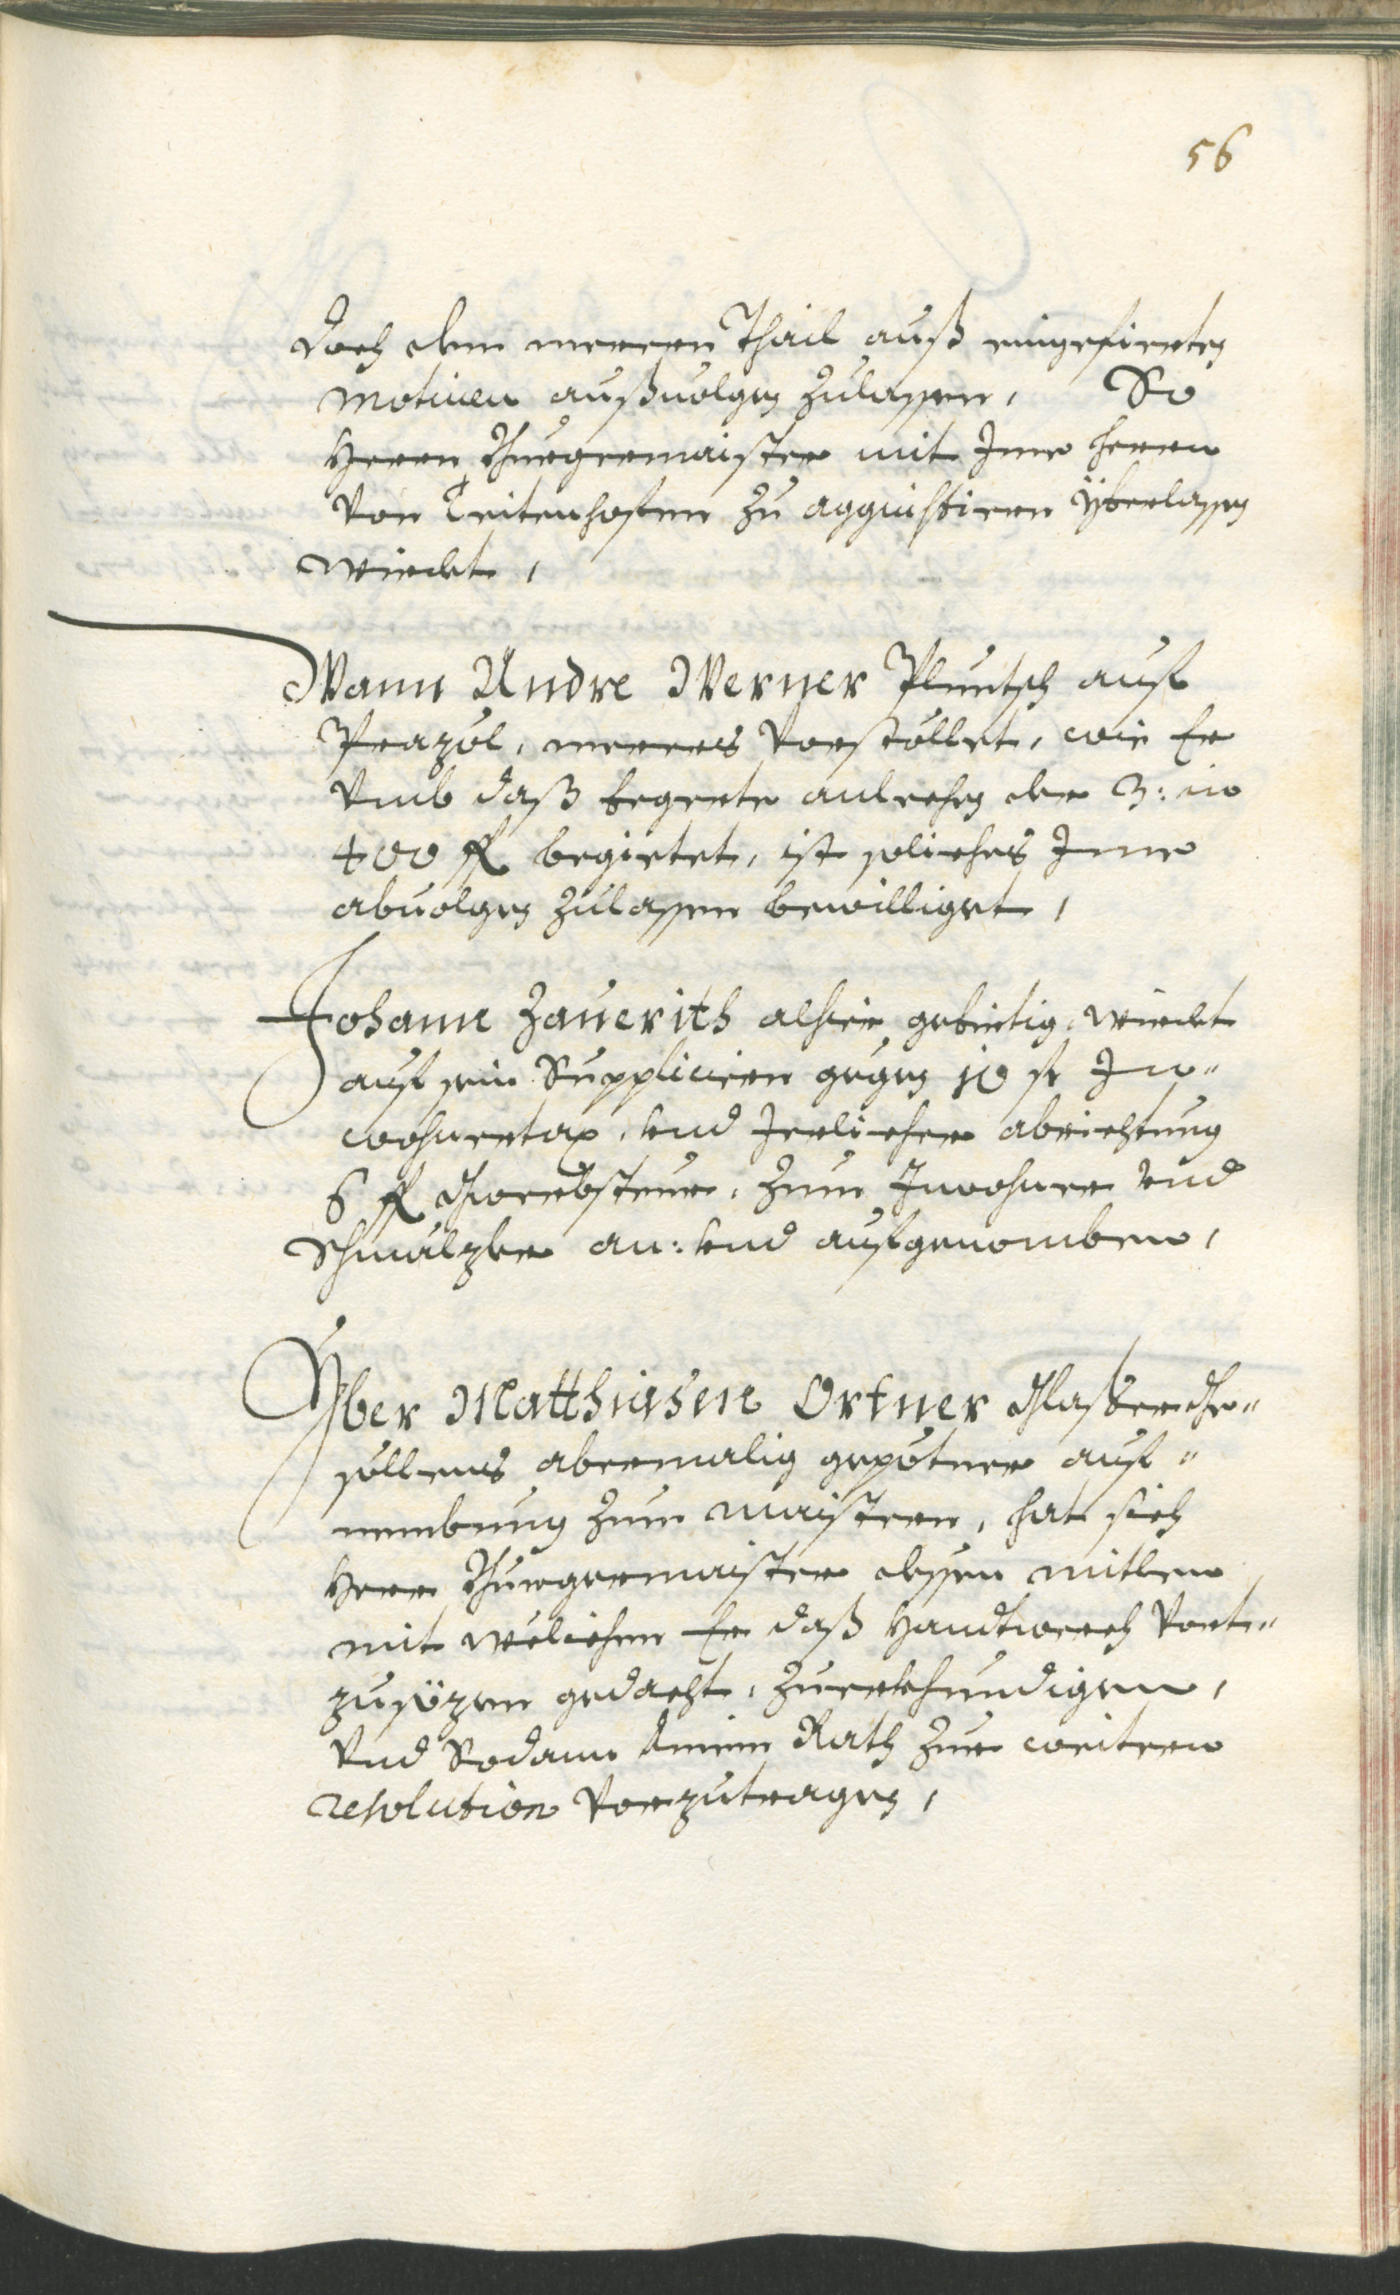 56
doch dem merern Thail auß eingefierten
motiven außuolgen zulassen, So
Herrn Burgermaister mit Ime Herrn
von Leitenhofen zu aqquistiren yberlassen
wirdet,
Wann Andre Werner Pluntsch auf
Prazöl, merers vorstöllet, wie Er
vmb daß begerte anlechen der 3: in
400 fl begietet, ist soliches Ime
abuolgen zulassen bewilliget,
Johann Zauerith alhie gebirtig, wirdet
auf sein Supplicieren gegen 10 fl In-
wohnertax, vnd Jerlicher abrichtung
6 fl Gwerbsteur, zum Inwohner vnd
Schmälzler an: vnd aufgenomben,
Yber Matthiasen Ortner Glasserge-
söllens abermalig gepötner auf-
nembung zum maistern, hat sich
Herr Burgermaister dessen mitlen
mit welichen Er daß Handtwerch fort-
zusözen gedacht, zuerkhundigen,
vnd Sodann Einem Rath zur weitern
resolution vorzutragen,